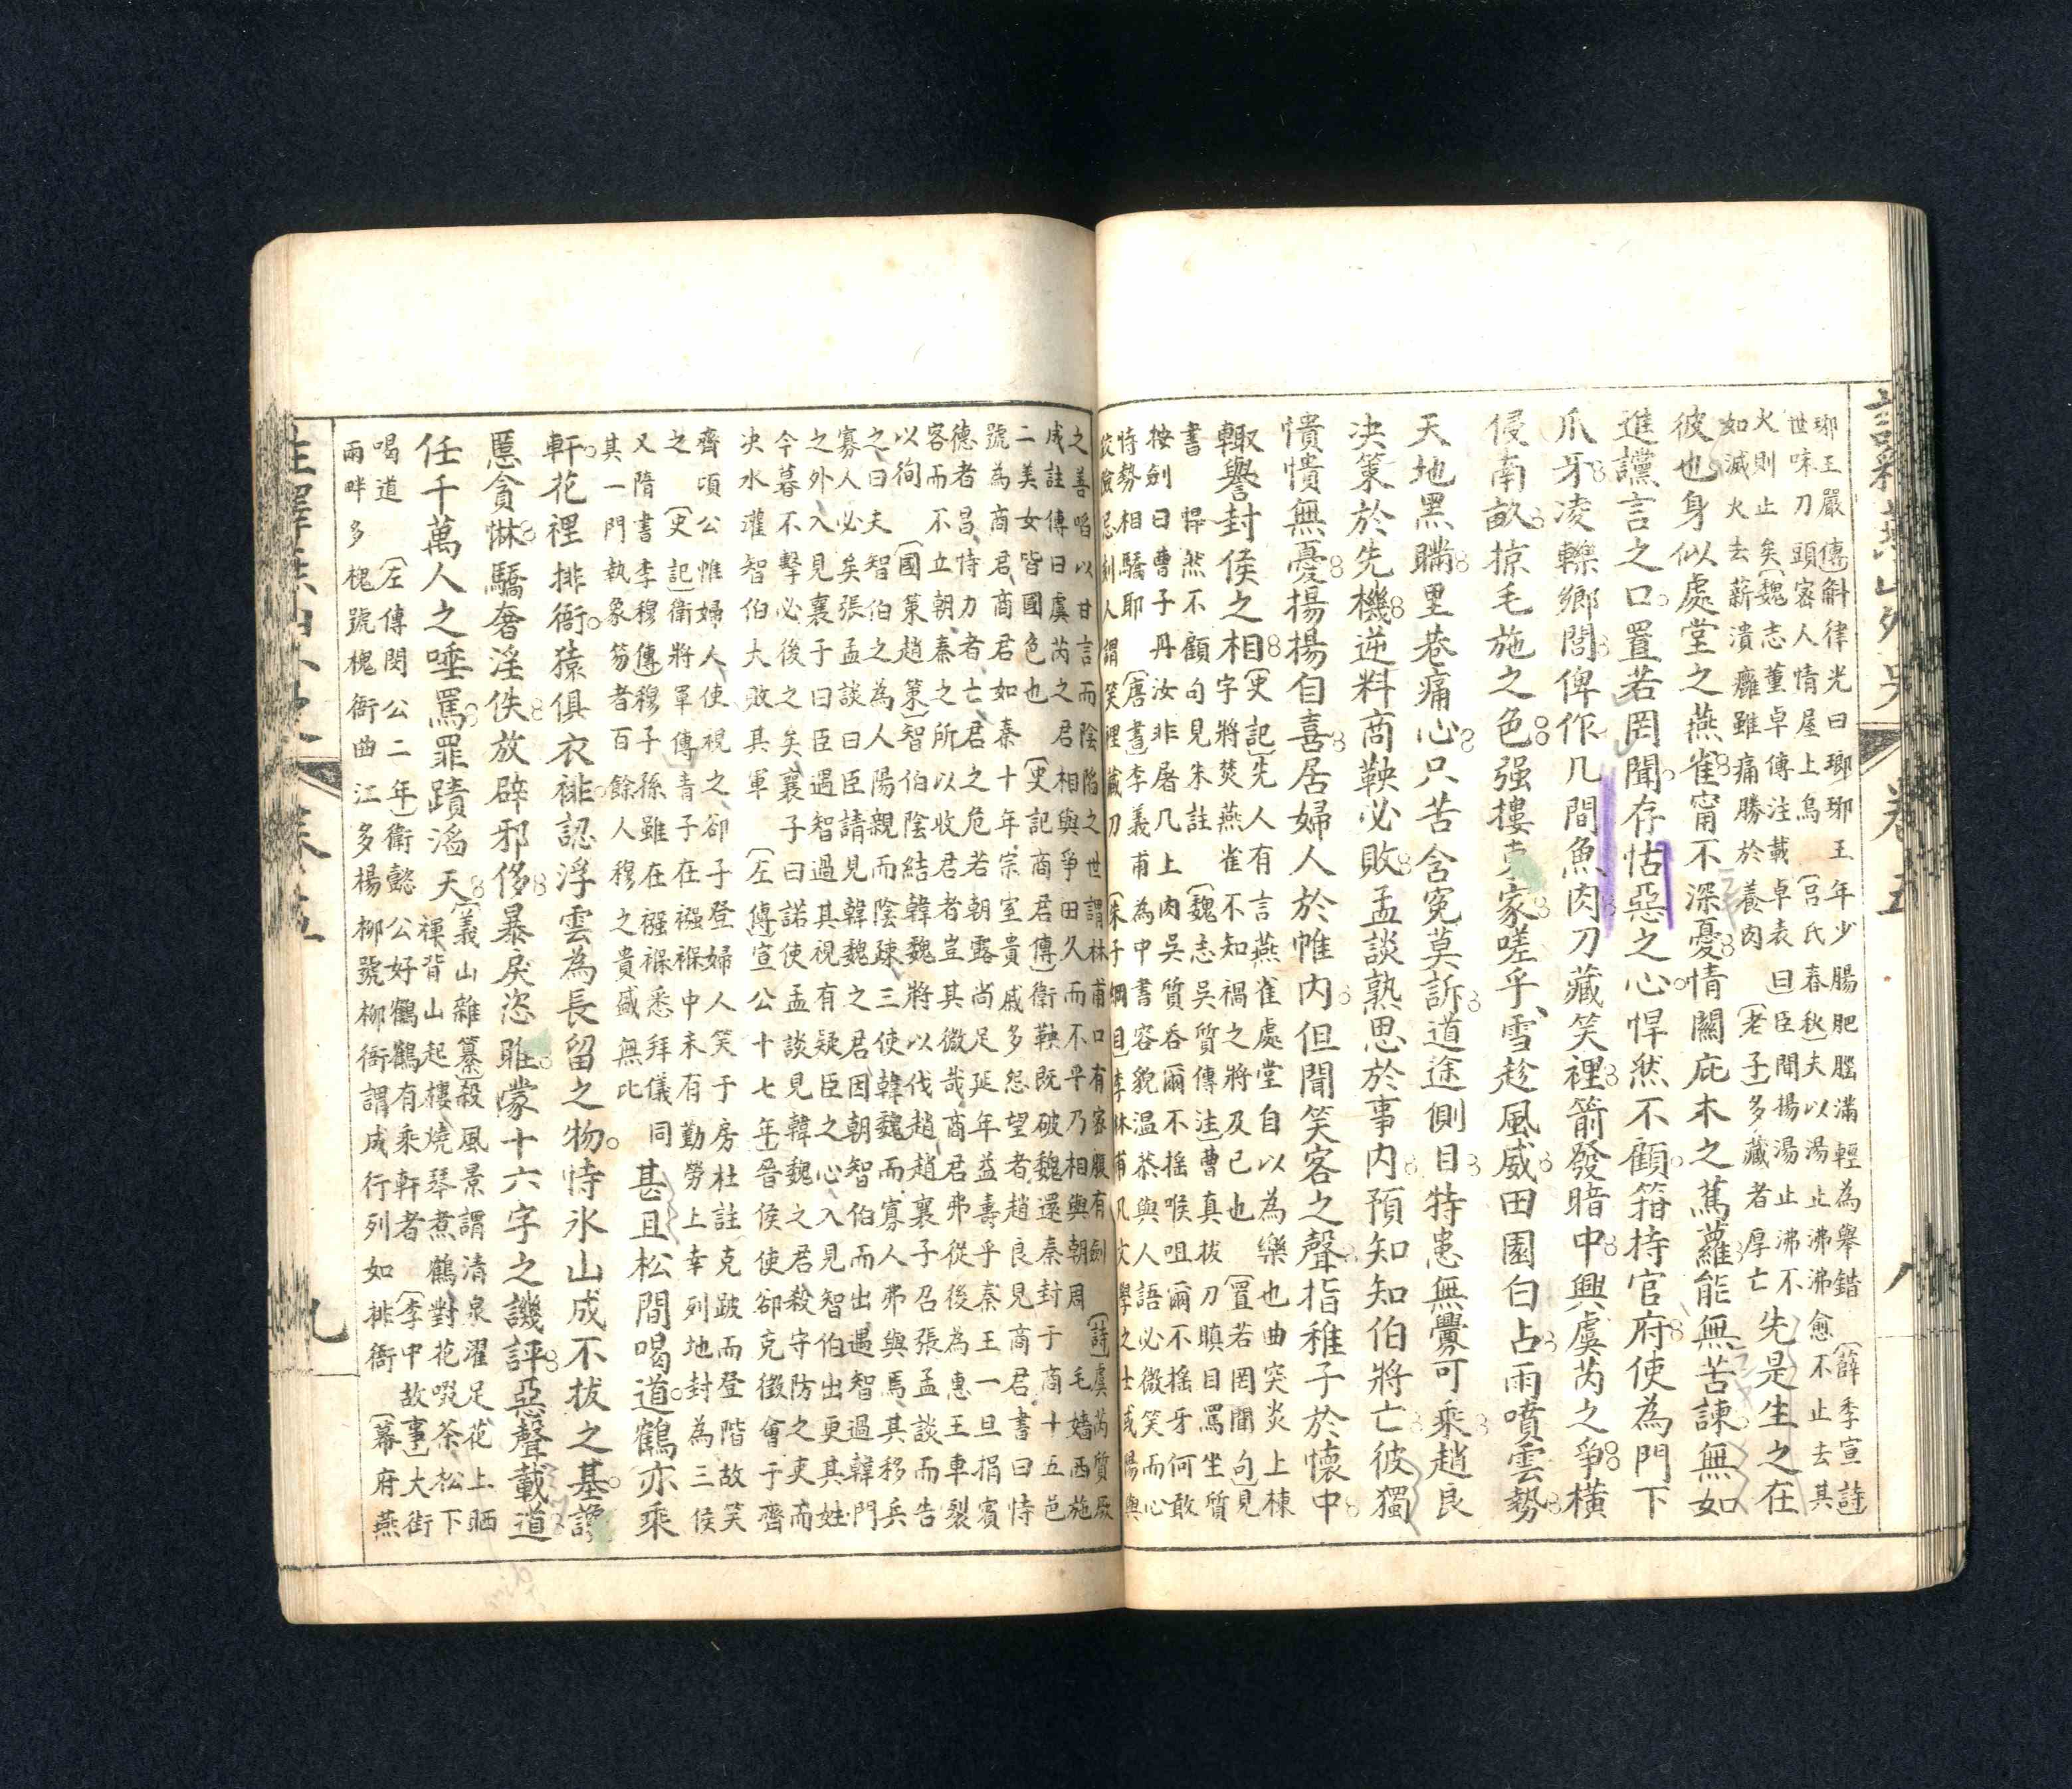 卷五
八
瑯王嚴傳斛律光曰瑯瑘王年少腸肥腦滿輕為舉錯薛季宣詩
世味刀頭密人情屋上烏呂氏春秋夫以湯止沸沸愈不止去其
火則止矣魏志董卓傳注載卓表曰臣聞揚湯止沸不
如滅火去薪潰癰雖痛勝於養肉老子多藏者厚亡
先是生之在
彼也身似處堂之燕雀甯不深憂情關庇木之蔦蘿能無苦諫無如
進讜言之口置若罔聞存怙惡之心悍然不顧箝持官府使為門下
爪牙凌轢鄉閭俾作几間魚肉刀藏笑裡箭發暗中興虞芮之爭橫
侵南畝掠毛施之色强摟東家嗟乎雪趁風威田園白占雨噴雲勢
天地黑瞞里巷痛心只苦含冤莫訴道途側目特患無釁可乘趙良
決策於先機逆料商鞅必敗孟談熟思於事內預知知伯將亡彼獨
憒憒無憂揚揚自喜居婦人於帷內但聞笑客之聲指稚子於懷中
輙譽封侯之相
史記先人有言燕雀處堂自以為樂也曲突炎上棟
字將焚燕雀不知禍之將及己也置若罔聞句見
書悍然不顧句見朱註魏志吳質傳注曹真拔刀瞋目罵坐質
按劍曰曹子丹汝非屠几上肉吳質吞爾不搖喉咀爾不搖牙何敢
恃勢相驕耶唐書李義甫為中書容貌温恭與人語必微笑而心
之善啗以甘言而陰陷之世謂林甫口有蜜腹有劍詩虞芮質厥
成註傳曰虞芮之君相與爭田久而不平乃相與朝周毛嬙西施
二美女皆國色也史記商君傳衛鞅既破魏還秦封于商十五邑
號為商君商君如秦十年宗室貴戚多怨望者趙良見商君書曰恃
德者昌恃力者亡君之危若朝露尚足延年益壽乎秦王一旦捐賓
客而不立朝秦之所以收君者豈其微哉商君弗從後為惠王車裂
以徇國策趙策智伯陰結韓魏將以伐趙趙襄子召張孟談而告
之曰夫智伯之為人陽親而陰疎三使韓魏而寡人弗與焉其移兵
寡人必矣張孟談曰臣請見韓魏之君因朝智伯而出遇智過韓門
之外入見襄子曰臣遇智過其視有疑臣之心入見智伯出更其姓
今暮不擊必後之矣襄子曰諾使孟談見韓魏之君殺守防之吏而
決水灌智伯大敗其軍左傳宣公十七年晉侯使卻克徵會于齊
齊頃公惟婦人使視之卻子登婦人笑于房杜註克跛而登階故笑
之史記衛將軍傳青子在襁褓中未有勤勞上幸列地封為三侯
又隋書李穆傳穆子孫雖在襁褓悉拜儀同
其一門執象笏者百餘人穆之貴盛無比
甚且松間喝道鶴亦乘
軒花裡排衙猿俱衣緋認浮雲為長留之物恃氷山成不拔之基讒
慝貪惏驕奢淫佚放辟邪侈暴戾恣雎蒙十六字之譏評惡聲載道
任千萬人之唾罵罪蹟滔天
義山雜纂殺風景謂清泉濯足花上晒
褌背山起樓燒琴煮鶴對花啜茶松下
喝道左傳閔公二年衛懿公好鶴鶴有乘軒者李中故事大街
兩畔多槐號槐衙曲江多楊柳號柳衙謂成行列如排衙幕府燕
卷五
九